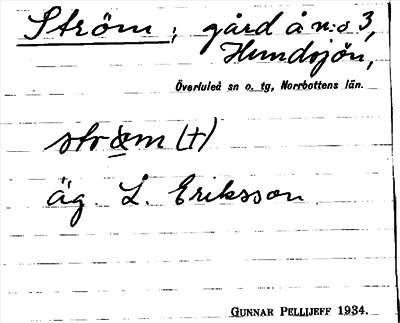 Ström, gård å n:o 3,
Hundsjön,
Överluleå sn o. tg, Norrbottens län.
strœm (+)
äg. L. Eriksson
GUNNAR PELLIJEFF 1934.